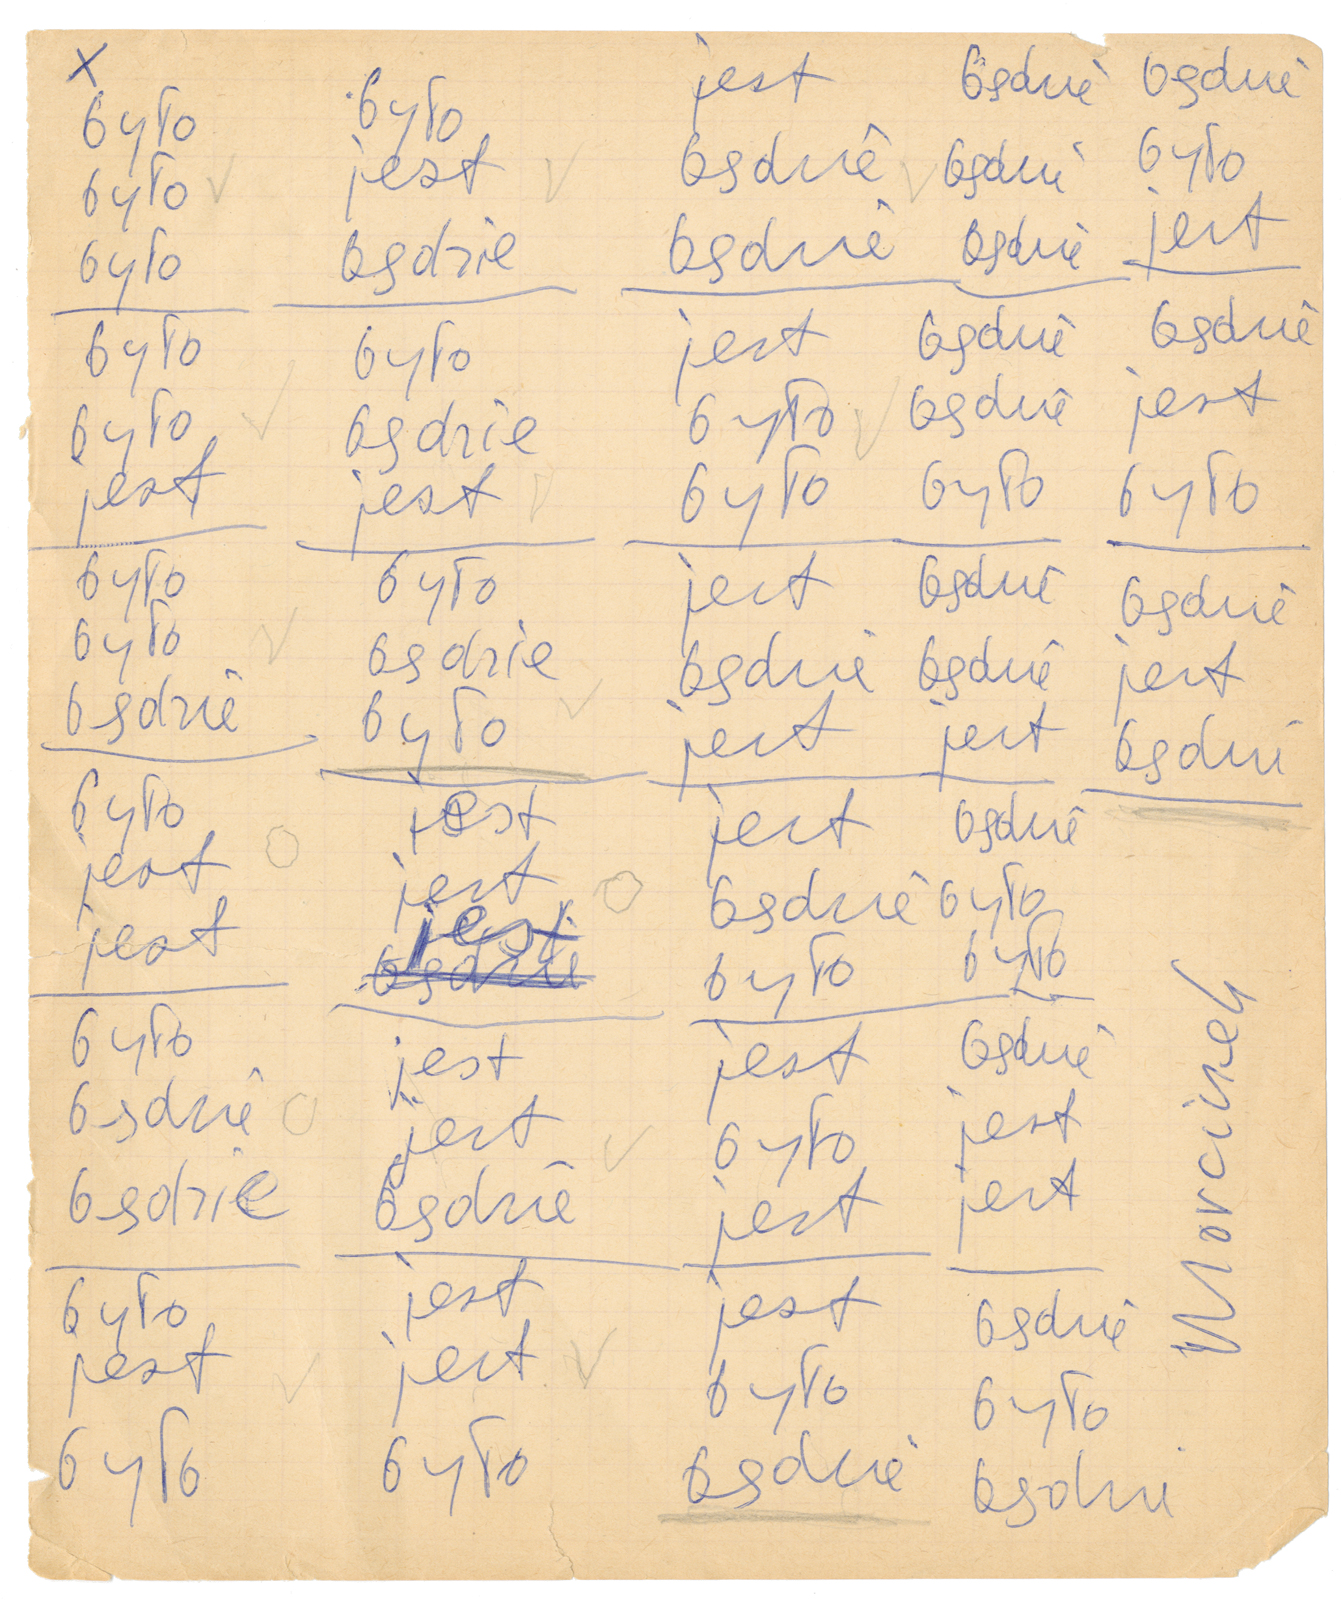 X
było
było
było
było
było
jest
było
było
będzie
było
jest
jest
było
będzie
będzie
było
jest
było
było
jest
będzie
było
będzie
jest
było
będzie
było
jest
jest
jest
będzie
jest
jest
będzie
jest
jest
było
jest
będzie
będzie
jest
było
było
jest
będzie
jest
jest
będzie
było
jest
było
jest
jest
było
będzie
będzie
będzie
będzie
będzie
będzie
było
będzie
będzie
jest
będzie
było
było
będzie
jest
jest
będzie
było
będzie
będzie
było
jest
będzie
jest
było
będzie
jest
będzie
Morcinek